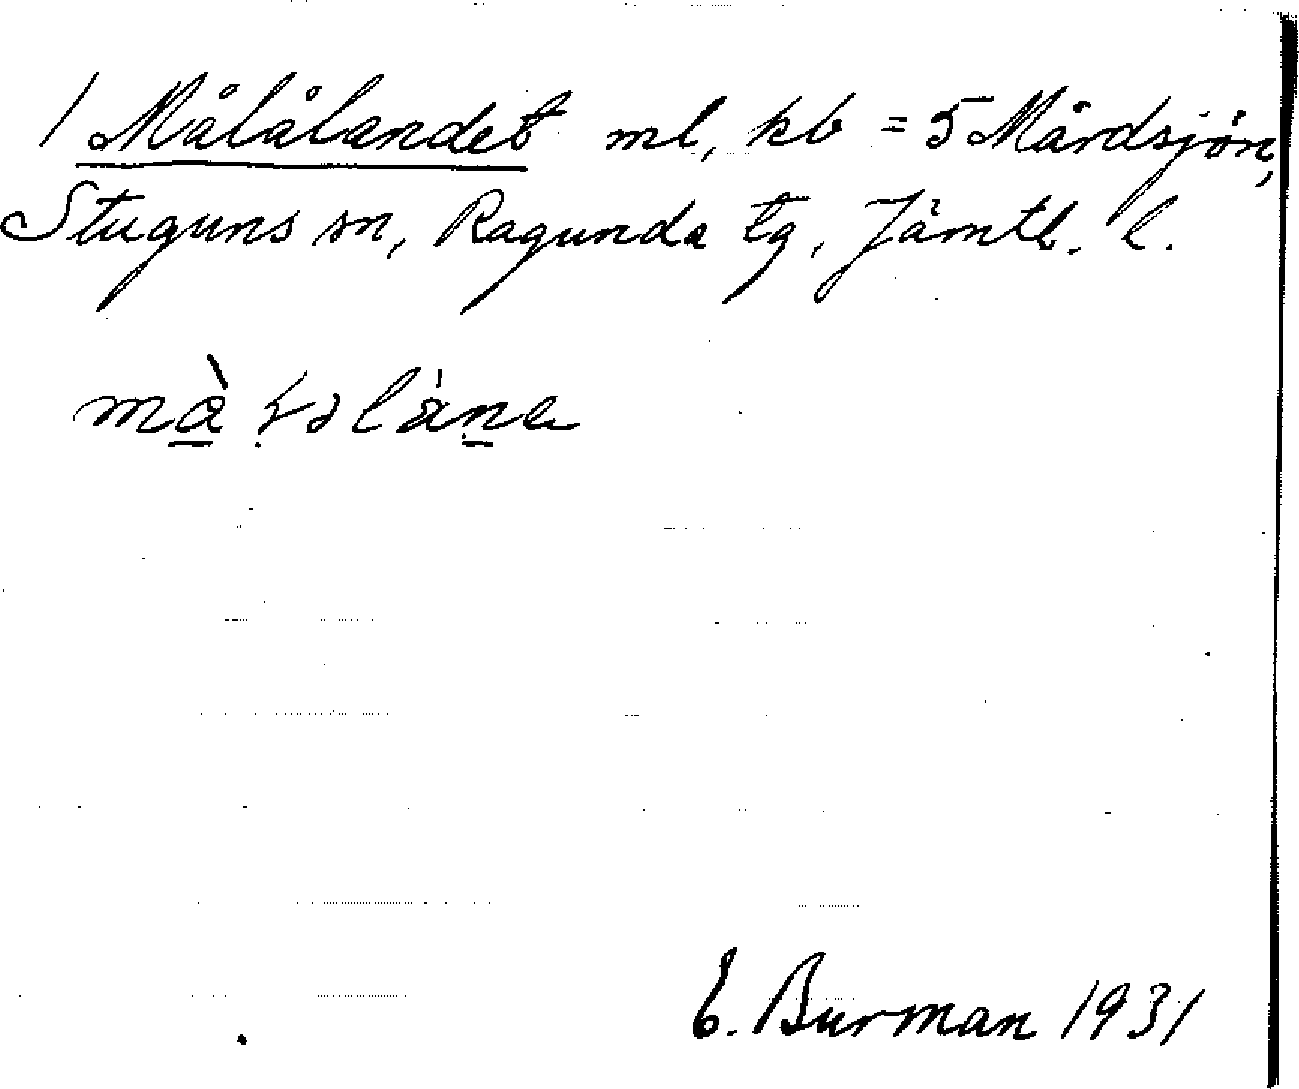 1 Målålandet ml, kb = 5 Mårdsjön,
Stuguns sn, Ragunda tg, Jämtl. l.
E. Burman 1931